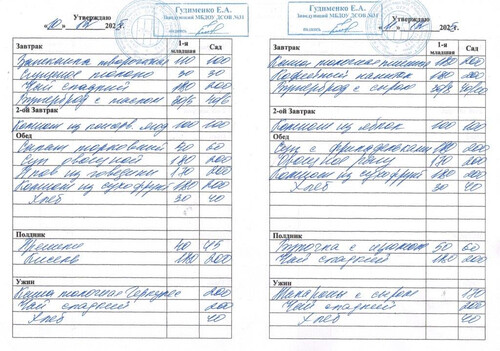 Утверждаю
Гудименко Е.А.
Заведующий МБДОУ ДСОВ №31
Завтрак 1-я младшая Сад
Запеканка творожная 110 100
Сгущенное молоко 30 30
Чай сладкий 180 200
Бутерброд с маслом
2-ой Завтрак
Компот из 100 100
Обед
Салат морковный 40 60
Суп овощной 180 200
Плов из говядины 170 200
Компот из сухофрукт 180 200
Хлеб 30 40
Полдник
Пряники 40 45
Кисель 180 200
Ужин
Каша молочная Геркулес 200
Чай сладкий 200
Хлеб 40
Утверждаю
Гудименко Е.А.
Заведующий МБДОУ ДСОВ №31
Завтрак 1-я младшая Сад
Каша молочная 180 200
Кофейный напиток 180 200
Бутерброд с сыром
2-ой Завтрак
Компот из яблок 100 100
Обед
Суп с фрикадельками 180 200
170 200
Компот из сухофрукт 180 200
Хлеб 30 40
Полдник
Булочка с изюмом 50 60
Чай сладкий 180 200
Ужин
Макароны с сыром 170
Чай сладкий 200
Хлеб 40